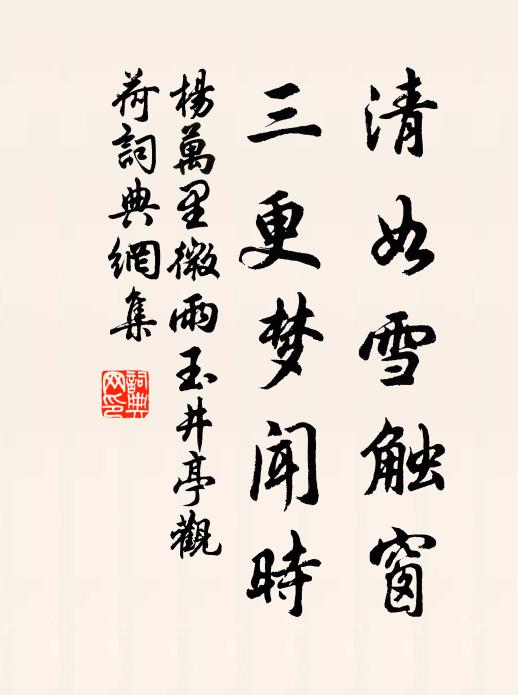 清如雪触窗
三更梦闻時
楊萬里微雨玉井亭觀
荷詞典網集
詞典
网印